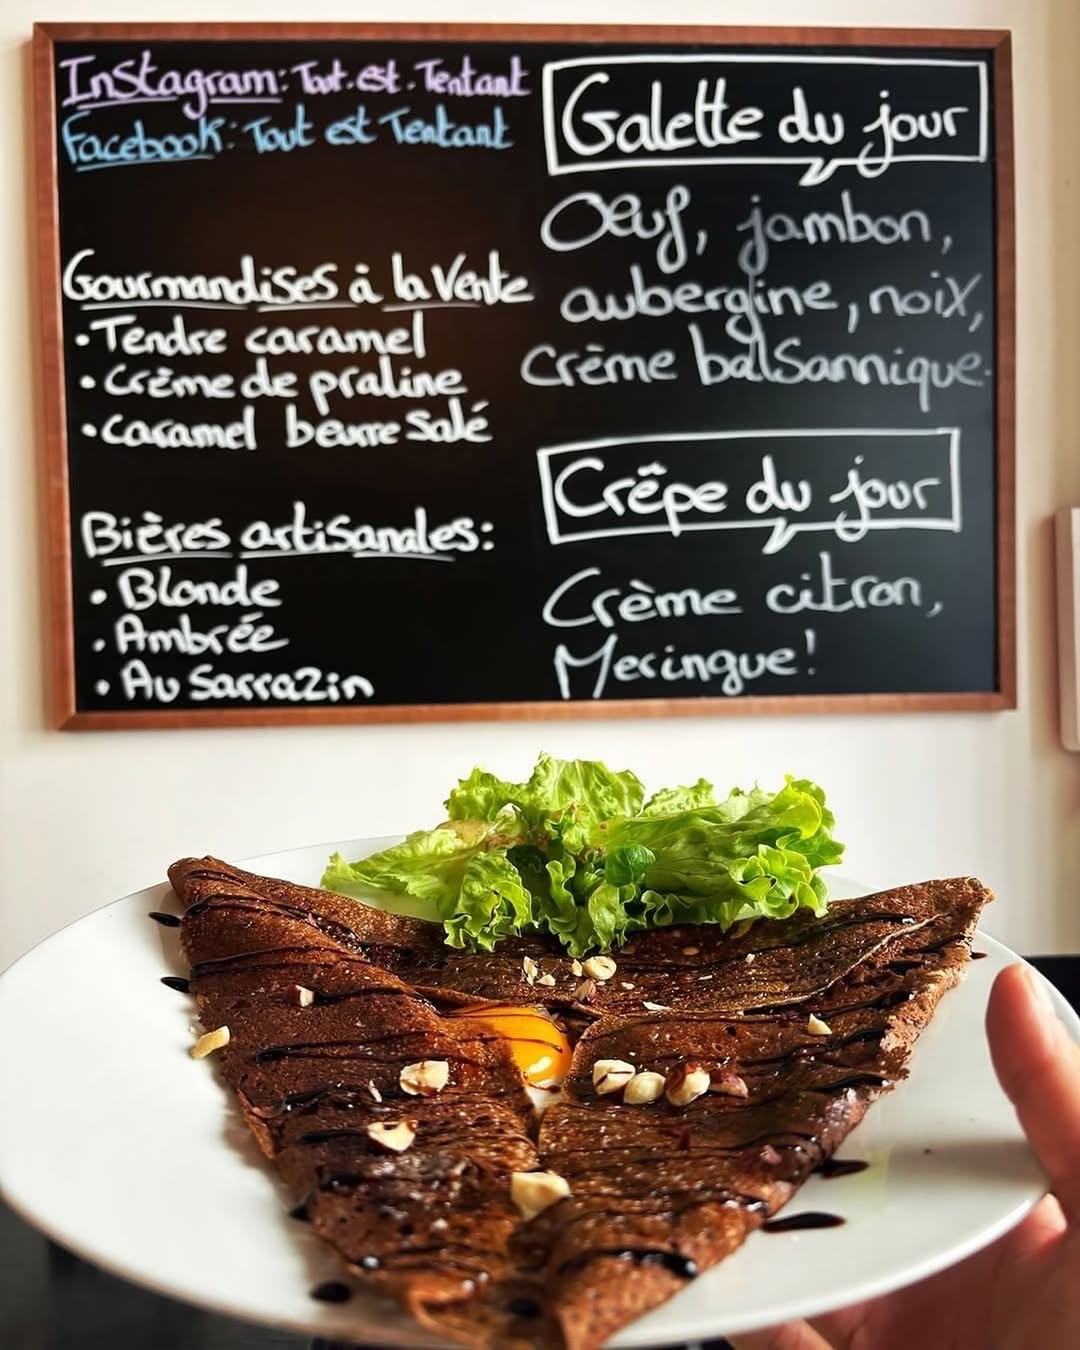 Instagram: Tout.est.Tentant
Facebook: Tout est Tentant
Gourmandises à la Vente
•Tendre caramel
•Crème de praline
•caramel beurre salé
Bières artisanales:
•Blonde
•Ambrée
•Au Sarrazin
Galette du jour
Oeuf, jambon,
aubergine, noix,
crème balsamnique.
Crêpe du jour
Crème citron,
Meringue!